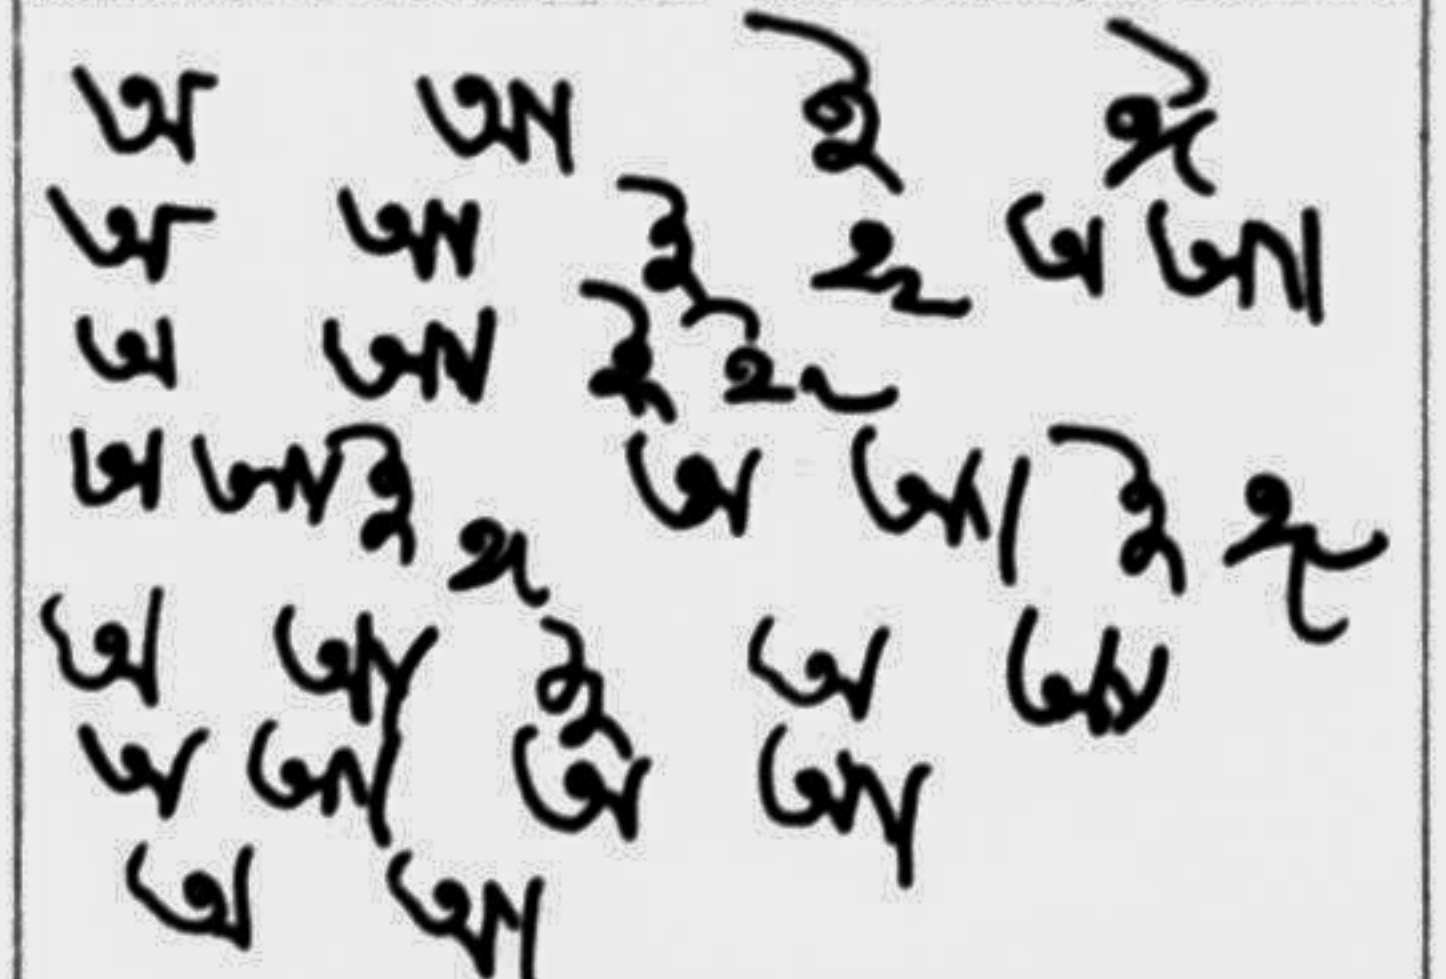 অ আ ই ঈ
অ আ ই ঈ অ আ
অ আ ই ঈ
অ আ ই ঈ অ আ ই ঈ
অ আ ই অ আ
অ আ অ আ
অ আ